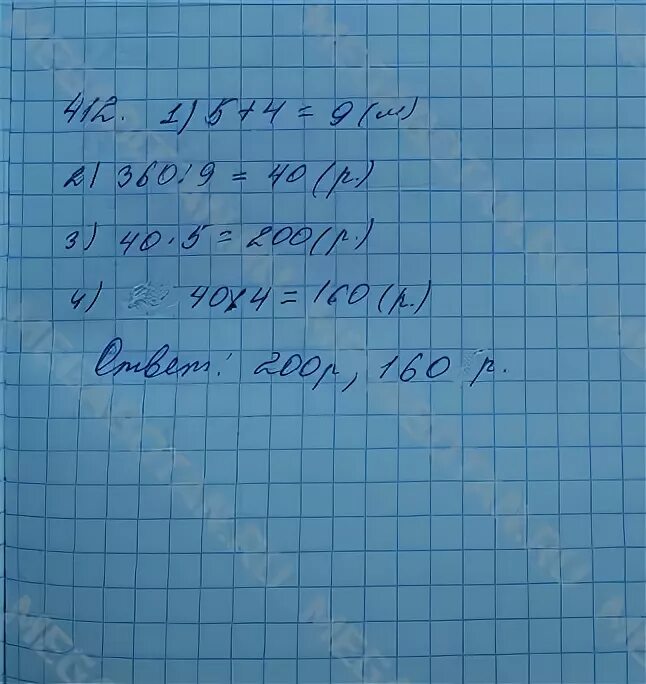 412. 1) 5+4 = 9 (м)
2) 360:9 = 40 (р.)
3) 40·5 = 200 (р.)
4) 40×4 = 160 (р.)
Ответ: 200р, 160 р.
MEGABOTAN.RU